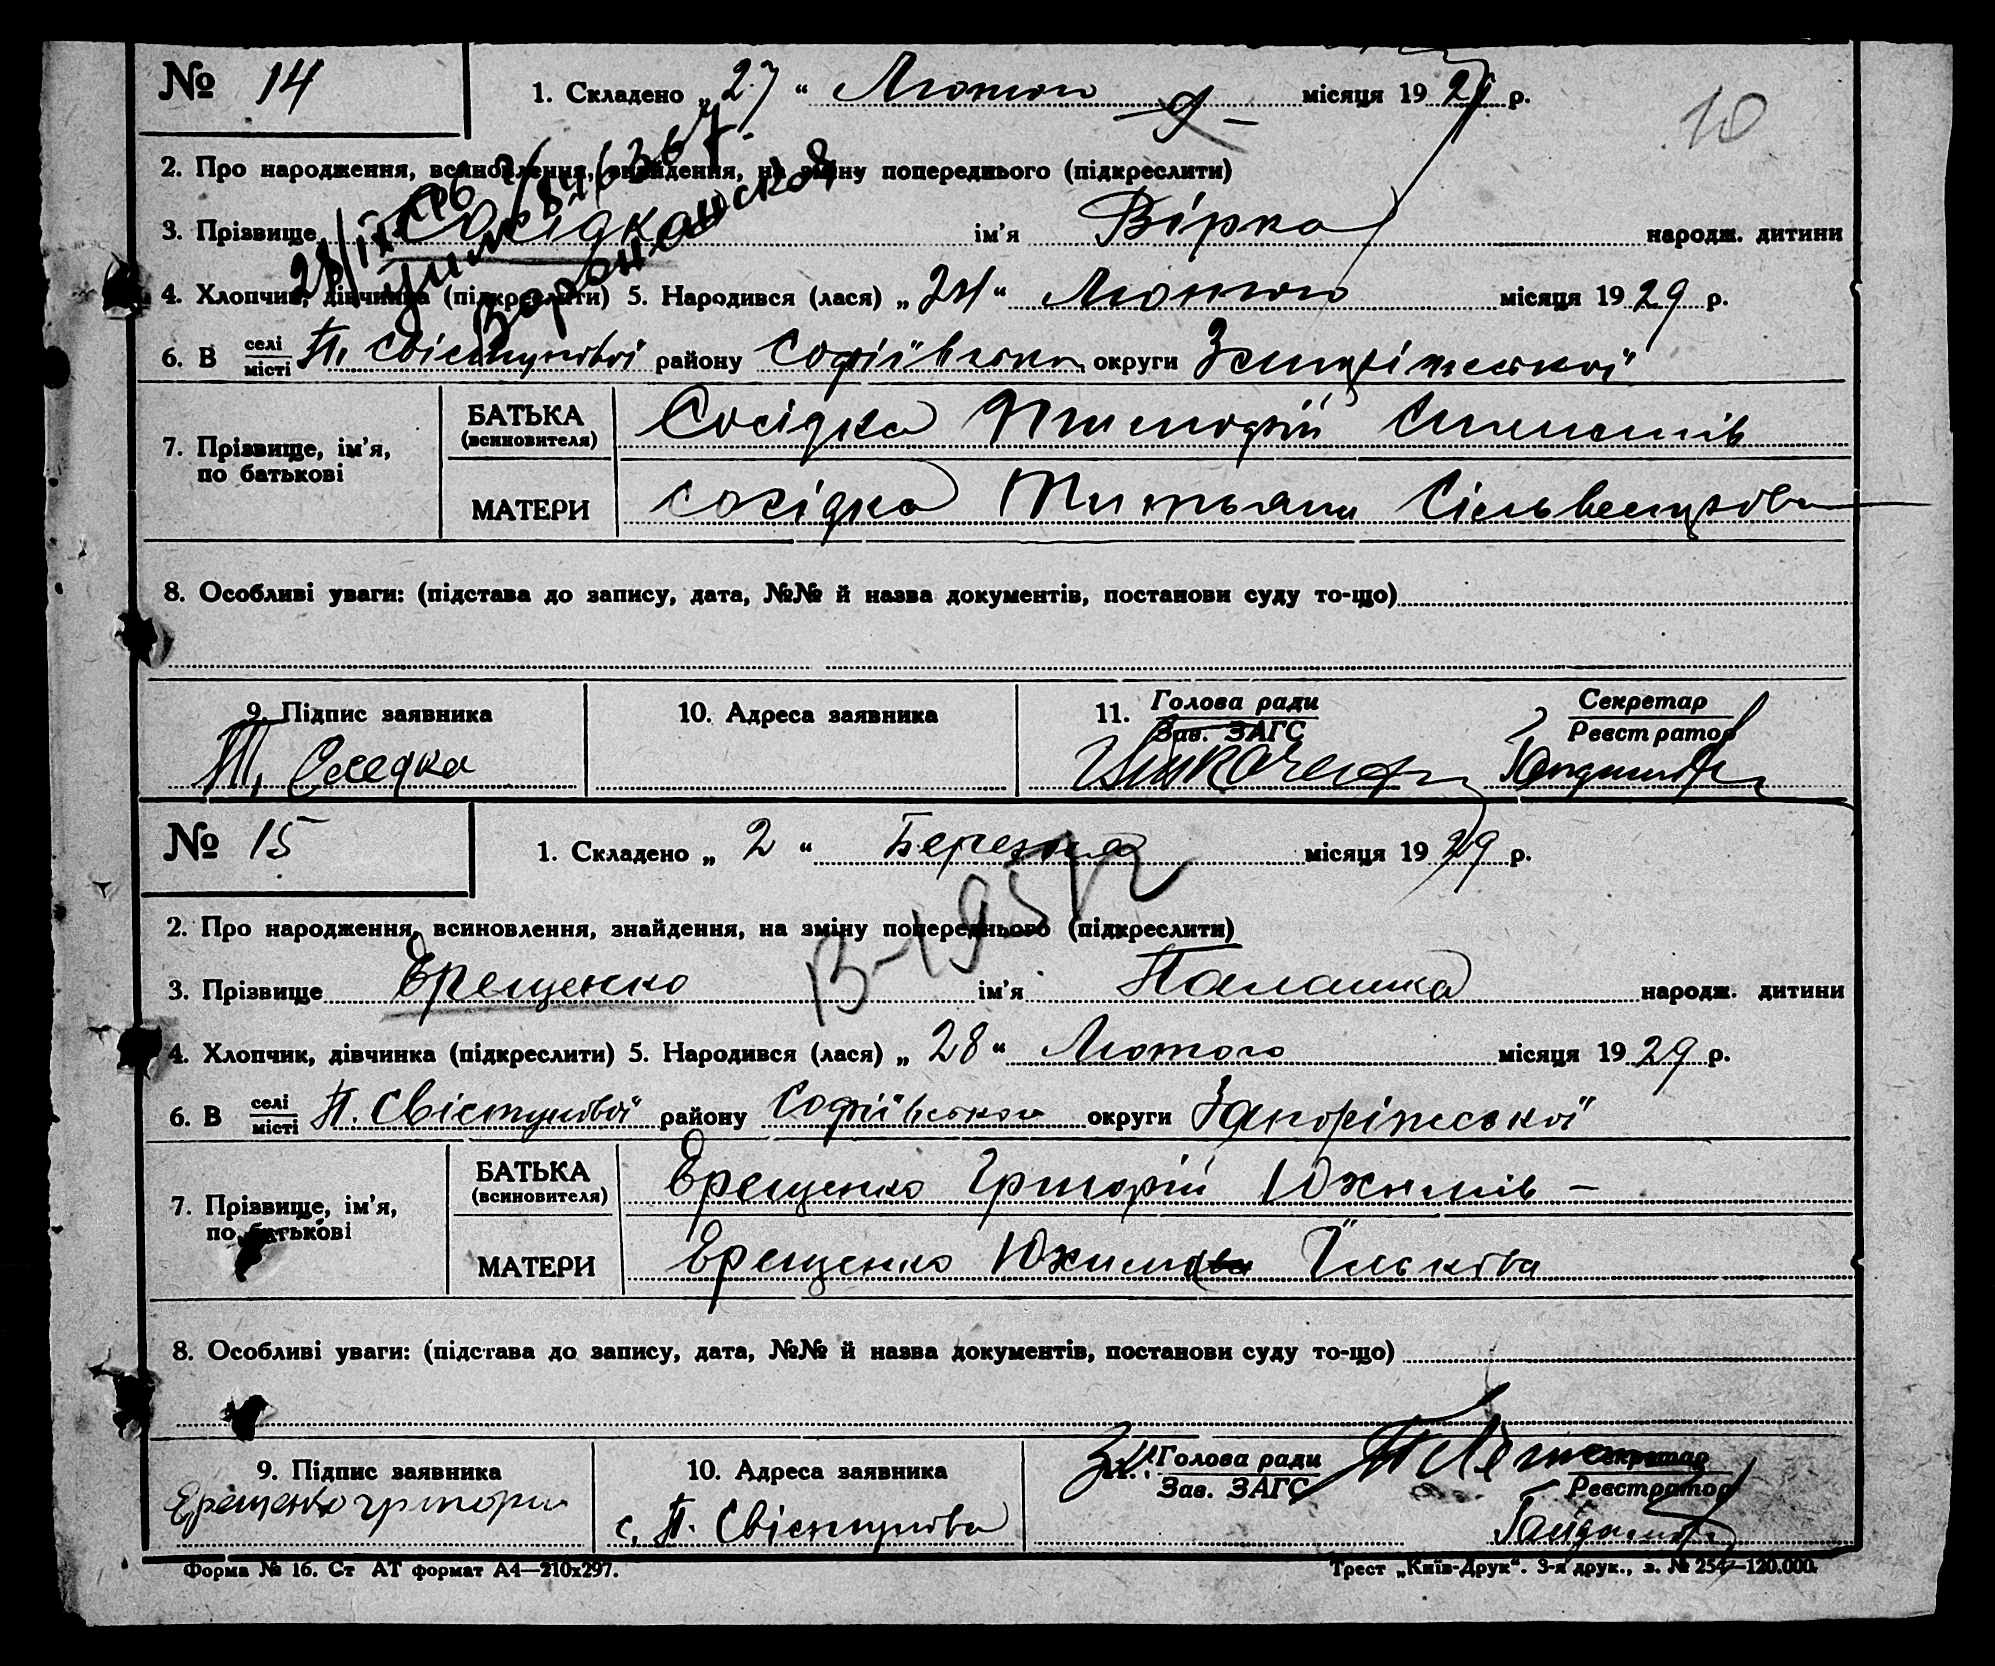 10
№ 14 1. Складено „ 27 “ Лютого місяця 1929 р.
2. Про народження, всиновлення, знайдення, на зміну попереднього (підкреслити)
3. Прізвище Сосідка ім’я Вірка народж. дитини
4. Хлопчик, дівчинка (підкреслити) 5. Народився (лася) „ 24 “ Лютого місяця 1929 р.
6. В селі місті П. Свістунової району Софіївського округи Запоріжської
7. Прізвище, ім’я, по батькові
БАТЬКА (всиновителя) Сосідка Тимофій
МАТЕРИ Сосідка Титьяна Сільвестрова
8. Особливі уваги: (підстава до запису, дата, №№ й назва документів, постанови суду то-що)
9. Підпис заявника 10. Адреса заявника 11. Голова ради Зав. ЗАГС Секретар Реєстратор
Т. Соседка
№ 15 1. Складено „ 2 “ Березня місяця 1929 р.
2. Про народження, всиновлення, знайдення, на зміну попереднього (підкреслити)
3. Прізвище Єрещенко ім’я Палашка народж. дитини
4. Хлопчик, дівчинка (підкреслити) 5. Народився (лася) „ 28 “ Лютого місяця 1929 р.
6. В селі місті П. Свістунової району Софіївського округи Запоріжської
7. Прізвище, ім’я, по батькові
БАТЬКА (всиновителя) Єрещенко Григорій Юхимів
МАТЕРИ Єрещенко Ількова
8. Особливі уваги: (підстава до запису, дата, №№ й назва документів, постанови суду то-що)
9. Підпис заявника 10. Адреса заявника Голова ради Зав. ЗАГС Секретар Реєстратор
Єрещенко Григори с. П. Свістунова
Форма № 16. Ст АТ формат А4—210х297. Трест „Київ-Друк“. 3-я друк., з. № 254—120.000.